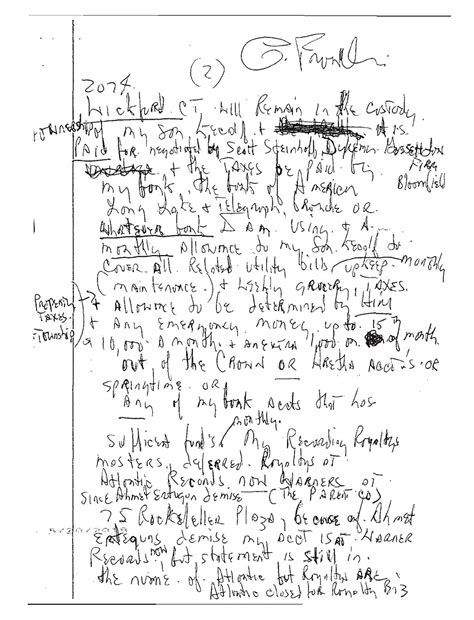 (2)
2074
Wickford CT. Will Remain in the custody
of my Son Kecalf +
Paid for. negotiated by Scott Steinhoff,
+ the TAXES be paid by
Firm
Bloomfield
my bank, the bank of America
Long Lake + Telegraph, OR
whatever bank I am using + A
monthly Allowance to my Son Kecalf to
cover All Related utility bills, upkeep monthly
(maintenance) + weekly grocery, TAXES.
Property
TAXES
+ Allowance to be determined by Him
+ Any Emergency money up to 15
10,000. a month
month
out of the Crown OR Aretha Acct's OR
springtime OR
Any of my bank accts that has
monthly.
Sufficient fund's My Recording Royaltys
masters, deferred Royaltys at
Atlantic Records now Warners at
Since Ahmet Ertegun demise (The Parent Co)
75 Rockefeller Plaza, because of Ahmet
Erteguns demise my Acct is at Warner
Records now, but statement is still in
the name of Atlantic but Royaltys ARE
Atlantic closed for Royalty